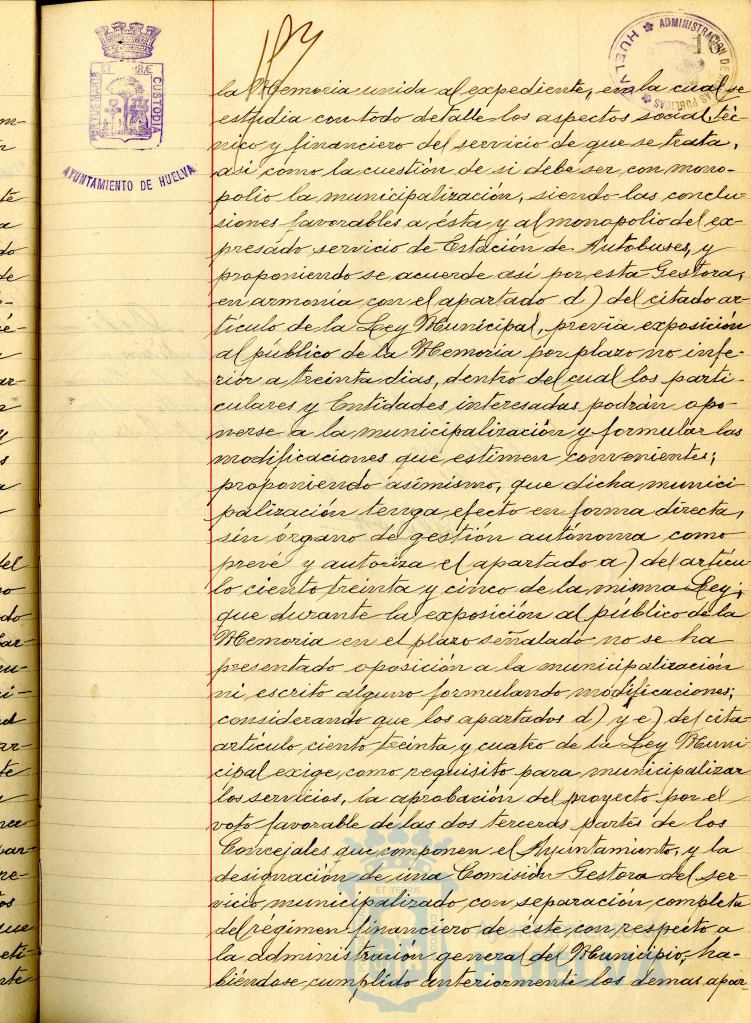 ADMINISTRACION DE
HUELVA
PUBLICAS
PORTUS MARIS
ET TERRÆ
CUSTODIA
AYUNTAMIENTO DE HUELVA
la Memoria unida al expediente, en la cual se
estudia con todo detalle los aspectos social, téc
nico y financiero del servicio de que se trata,
asi como la cuestión de si debe ser con mono-
polio la municipalización, siendo las conclu-
siones favorables a ésta y al monopolio del ex-
presado servicio de Estación de Autobuses, y
proponiendo se acuerde así por esta Gestora,
en armonía con el apartado d) del citado ar-
tículo de la Ley Municipal, previa exposición
al público de la Memoria por plazo no infe-
rior a treinta dias, dentro del cual los parti-
culares y Entidades interesadas podrán opo
nerse a la municipalización y formular las
modificaciones que estimen convenientes;
proponiendo asimismo, que dicha munici
palización tenga efecto en forma directa,
sin órgano de gestión autónoma como
prevé y autoriza el apartado a) del artícu-
lo ciento treinta y cinco de la misma Ley;
que durante la exposición al público de la
Memoria en el plazo señalado no se ha
presentado oposición a la municipalización
ni escrito alguno formulando modificaciones;
considerando que los apartados d) y e) del cita-
artículo ciento treinta y cuatro de la Ley Muni
cipal exige como requisito para municipalizar
los servicios, la aprobación del proyecto por el
voto favorable de las dos terceras partes de los
Concejales que componen el Ayuntamiento, y la
designación de una Comisión Gestora del ser-
vicio municipalizado con separación completa
del régimen financiero de éste con respecto a
la administración general del Municipio, ha-
biéndose cumplido anteriormente los demas apar
ET TERRÆ
Ayuntamiento de
HUELVA